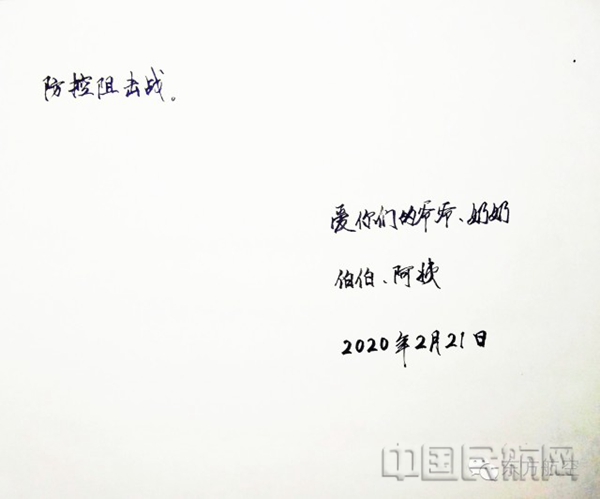 防控阻击战。
爱你们的爷爷、奶奶
伯伯、阿姨
2020年2月21日
中国民航网
东方航空